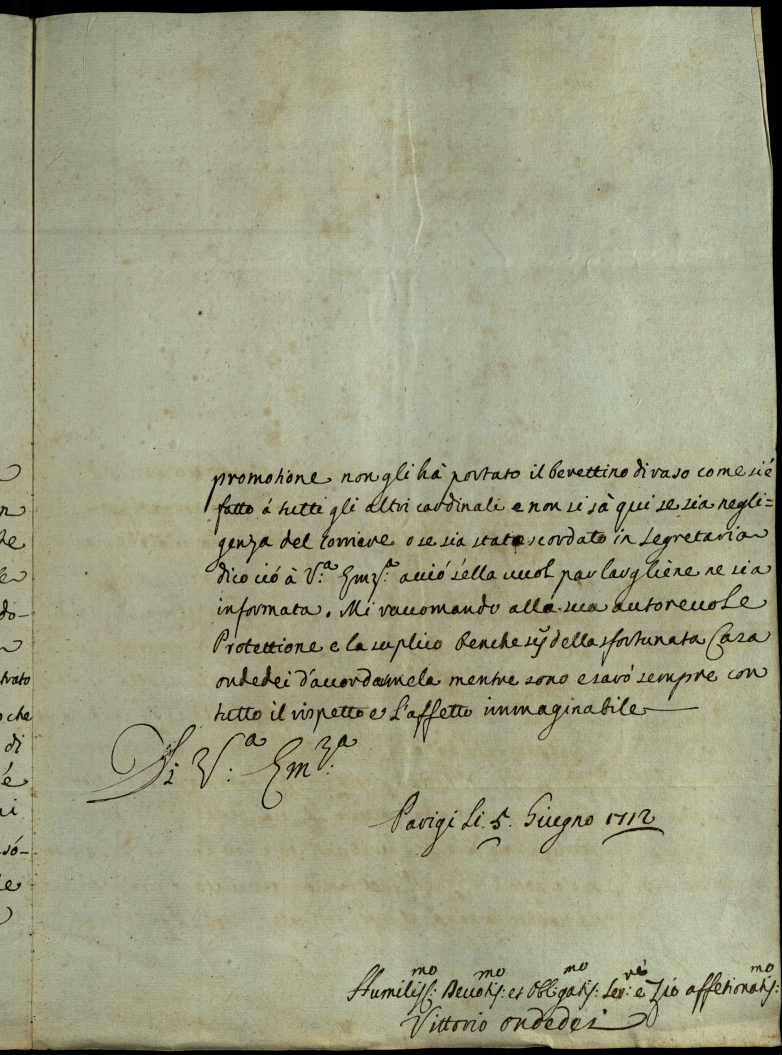 promotione non gli hà portato il berettino di raso come si é
fatto á tutti gli altri cardinali e non si sà qui se sia negli=
genza del corriere o se sia stato scordato in segretaria
dico ció à V.ª Em.zª acció s'ella vuol parlargliene ne sia
informata. Mi raccomando alla sua autorevole
Protettione e la suplico benche sij della sfortunata Casa
ondedei d'accordarmela mentre sono e saró sempre con
tutto il rispetto e l'affetto immaginabile
Di V:ª Em:zª
Parigi li. 5. Giugno 1712
Humiliss:mo Devotis:mo et Obligatis:mo Ser:re e Zio affetionatis:mo
Vittorio ondedei
n
do-
trato
o che
di
é
só-
e